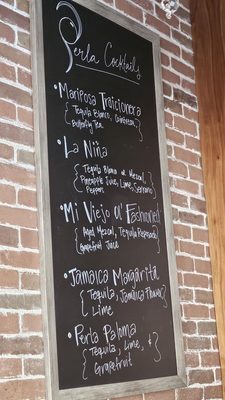 Perla Cocktails
• Mariposa Traicionera
{ Tequila Blanco, Cointreau,
Butterfly Tea }
• La Niña
{ Tequila Blanco or Mezcal
Pineapple Juice, Lime, Serrano
Peppers }
• Mi Viejo Ol' Fashioned
{ Aged Mezcal, Tequila Reposado
Grapefruit Juice }
• Jamaica Margarita
{ Tequila, Jamaica Flower
Lime }
• Perla Paloma
{ Tequila, Lime, &
Grapefruit }